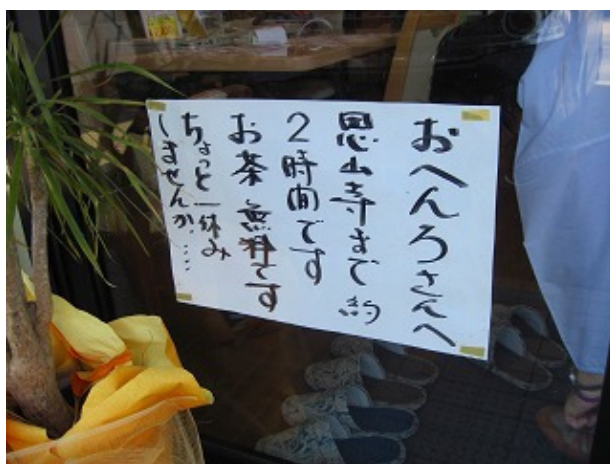 おへんろさんへ
恩山寺まで約
2時間です
お茶無料です
ちょっと一休み
しませんか....